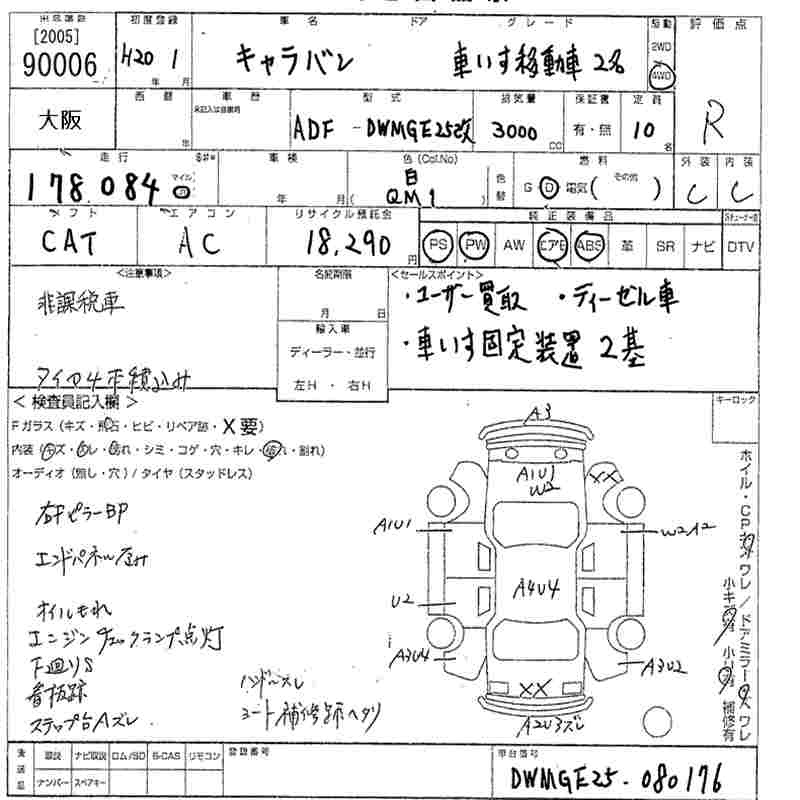 出品番号 初度登録 車名 ドア グレード 駆動 評価点
[2005]
90006 H20 1 キャラバン 車いす移動車 2名 2WD 4WD R
年 月
大阪 西暦 車歴 型式 排気量 保証書 定員
年 ADF - DWMGE25改 3000 CC 有・無 10 名
走行 車検 色(Col.No) 燃料 その他 外装 内装
178,084 マイル 年 月 白 QM1 色替 G D 電気 ( ) C C
シフト エアコン リサイクル預託金 純正装備品
CAT AC 18,290円 PS PW AW エアB ABS 革 SR ナビ DTV
<注意事項> 名変期限 <セールスポイント>
非課税車 月 日 ・ユーザー買取 ・ディーゼル車
輸入車 ・車いす固定装置 2基
ディーラー・並行
タイヤ4本積込み 左H ・ 右H
<検査員記入欄> キーロック
Fガラス(キズ・飛石・ヒビ・リペア跡・X要)
内装(キズ・汚れ・シミ・コゲ・穴・キレ・割れ)
オーディオ(無し・穴)/タイヤ(スタッドレス)
A3
A1U1
W2
XX
右Fピラー BP
A1U1
W2A2
エンドパネル歪み
A4U4
U2
オイルもれ
エンジンチェックランプ点灯
A3U4
A3U2
下廻りS
看板跡
ハンドルスレ
XX
ステップ台Aズレ
シート補修跡ヘタリ
A2U3ズレ
ホイル・CPキズ ワレ/ドアミラー キズ ワレ
補修有
未送品 取説 ナビ取説 ロム/SD B-CAS リモコン 登録番号 車台番号
ナンバー スペアキー DWMGE25-080176